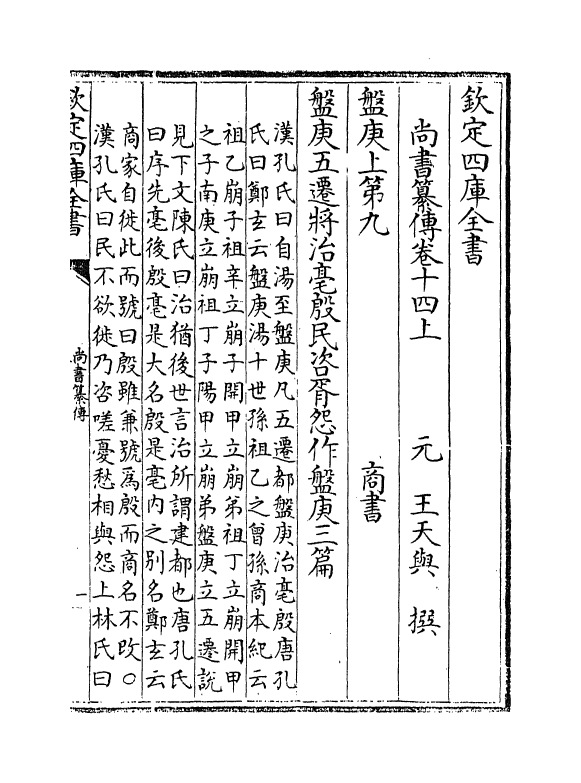 欽定四庫全書
尚書纂傳卷十四上
元 王天與 撰
盤庚上第九 商書
盤庚五遷將治亳殷民咨胥怨作盤庚三篇
漢孔氏曰自湯至盤庚凡五遷都盤庚治亳殷唐孔
氏曰鄭𤣥云盤庚湯十世孫祖乙之曾孫商本紀云
祖乙崩子祖辛立崩子開甲立崩弟祖丁立崩開甲
之子南庚立崩祖丁子陽甲立崩弟盤庚立五遷說
見下文陳氏曰治猶後世言治所謂建都也唐孔氏
曰序先亳後殷亳是大名殷是亳内之别名鄭𤣥云
商家自徙此而號曰殷雖兼號為殷而商名不改○
漢孔氏曰民不欲徙乃咨嗟憂愁相與怨上林氏曰
欽定四庫全書
尚書纂傳
一